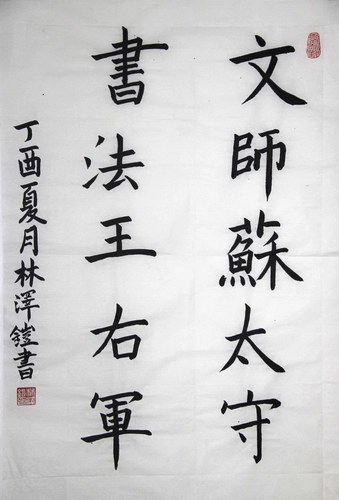 文師蘇太守
書法王右軍
丁酉夏月林澤鎧書